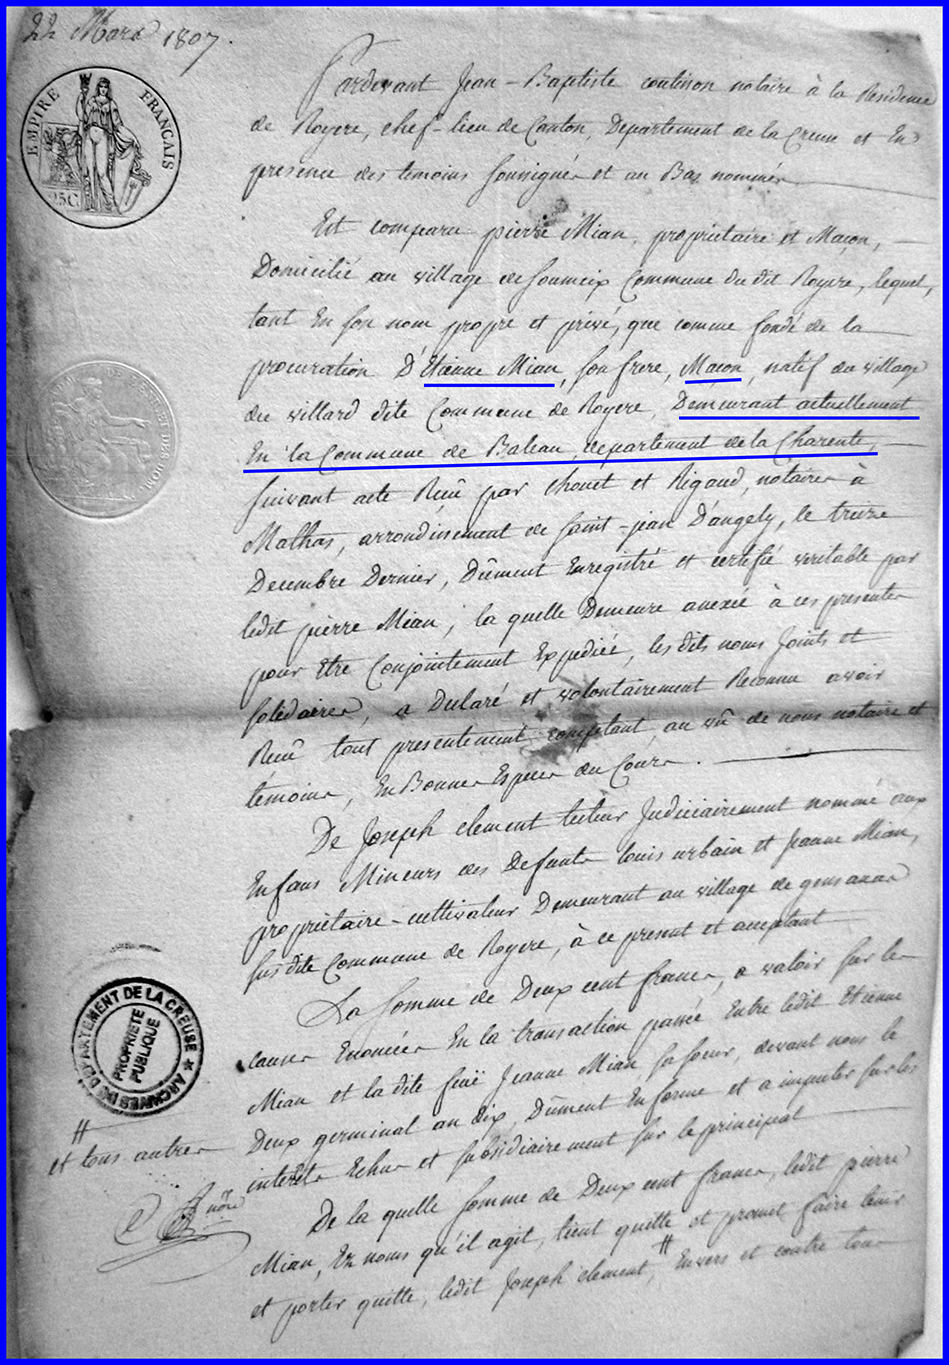 22 Mars 1807.
EMPIRE FRANÇAIS
25C
Pardevant Jean-Baptiste coutison notaire à la Residence
de Royere, chef-lieu de Canton, Departement de la Creuse et En
presence des temoins soussignés et au Bas nommés
Est comparu pierre Mian, proprietaire et Maçon,
Domicilié au village de soumeix Commune du dit Royere, lequel,
tant En son nom propre et privé, que comme fondé de la
procuration D'Etienne Mian, son frere, Maçon, natif du village
du villard dite Commune de Royere, Demeurant actuellement
En la Commune de Balean, departement de la Charente,
suivant acte Reçu par chouet et Rigaud, notaires à
Mathas, arrondissement de saint-jean D'angely, le treize
Decembre Dernier, Dûment Enregistré et certifié veritable par
ledit pierre Mian, la quelle Demeure anexée à ces presentes
pour Etre Conjointement Expediée, les dits noms Joints et
solidaires, a Declaré et volontairement Reconnu avoir
Reçu tout presentement comptant, au vû de nous notaire et
témoins, En Bonnes Especes du Cours.
De Joseph clement tuteur Judiciairement nommé aux
Enfans Mineurs des Defunts louis urbain et Jeanne Mian,
proprietaire-cultivateur Demeurant au village de
susdite Commune de Royere, à ce present et acceptant
La somme de Deux cent francs, a valoir sur les
causes Enoncées En la transaction passée Entre ledit Etienne
Mian et la dite feüe Jeanne Mian, sa soeur, devant nous le
Deux germinal an dix, Dûment En forme et a imputer sur les
interêts Echus et subsidiairement sur le principal
De la quelle somme de Deux cent francs, ledit pierre
Mian, Ez noms qu'il agit, tient quitte et promet faire tenir
et porter quitte, ledit Joseph clement, # Envers et contre tous
DEPARTEMENT DE LA CREUSE ★ ARCHIVES DU
PROPRIETE
PUBLIQUE
#
et tous autres
nore